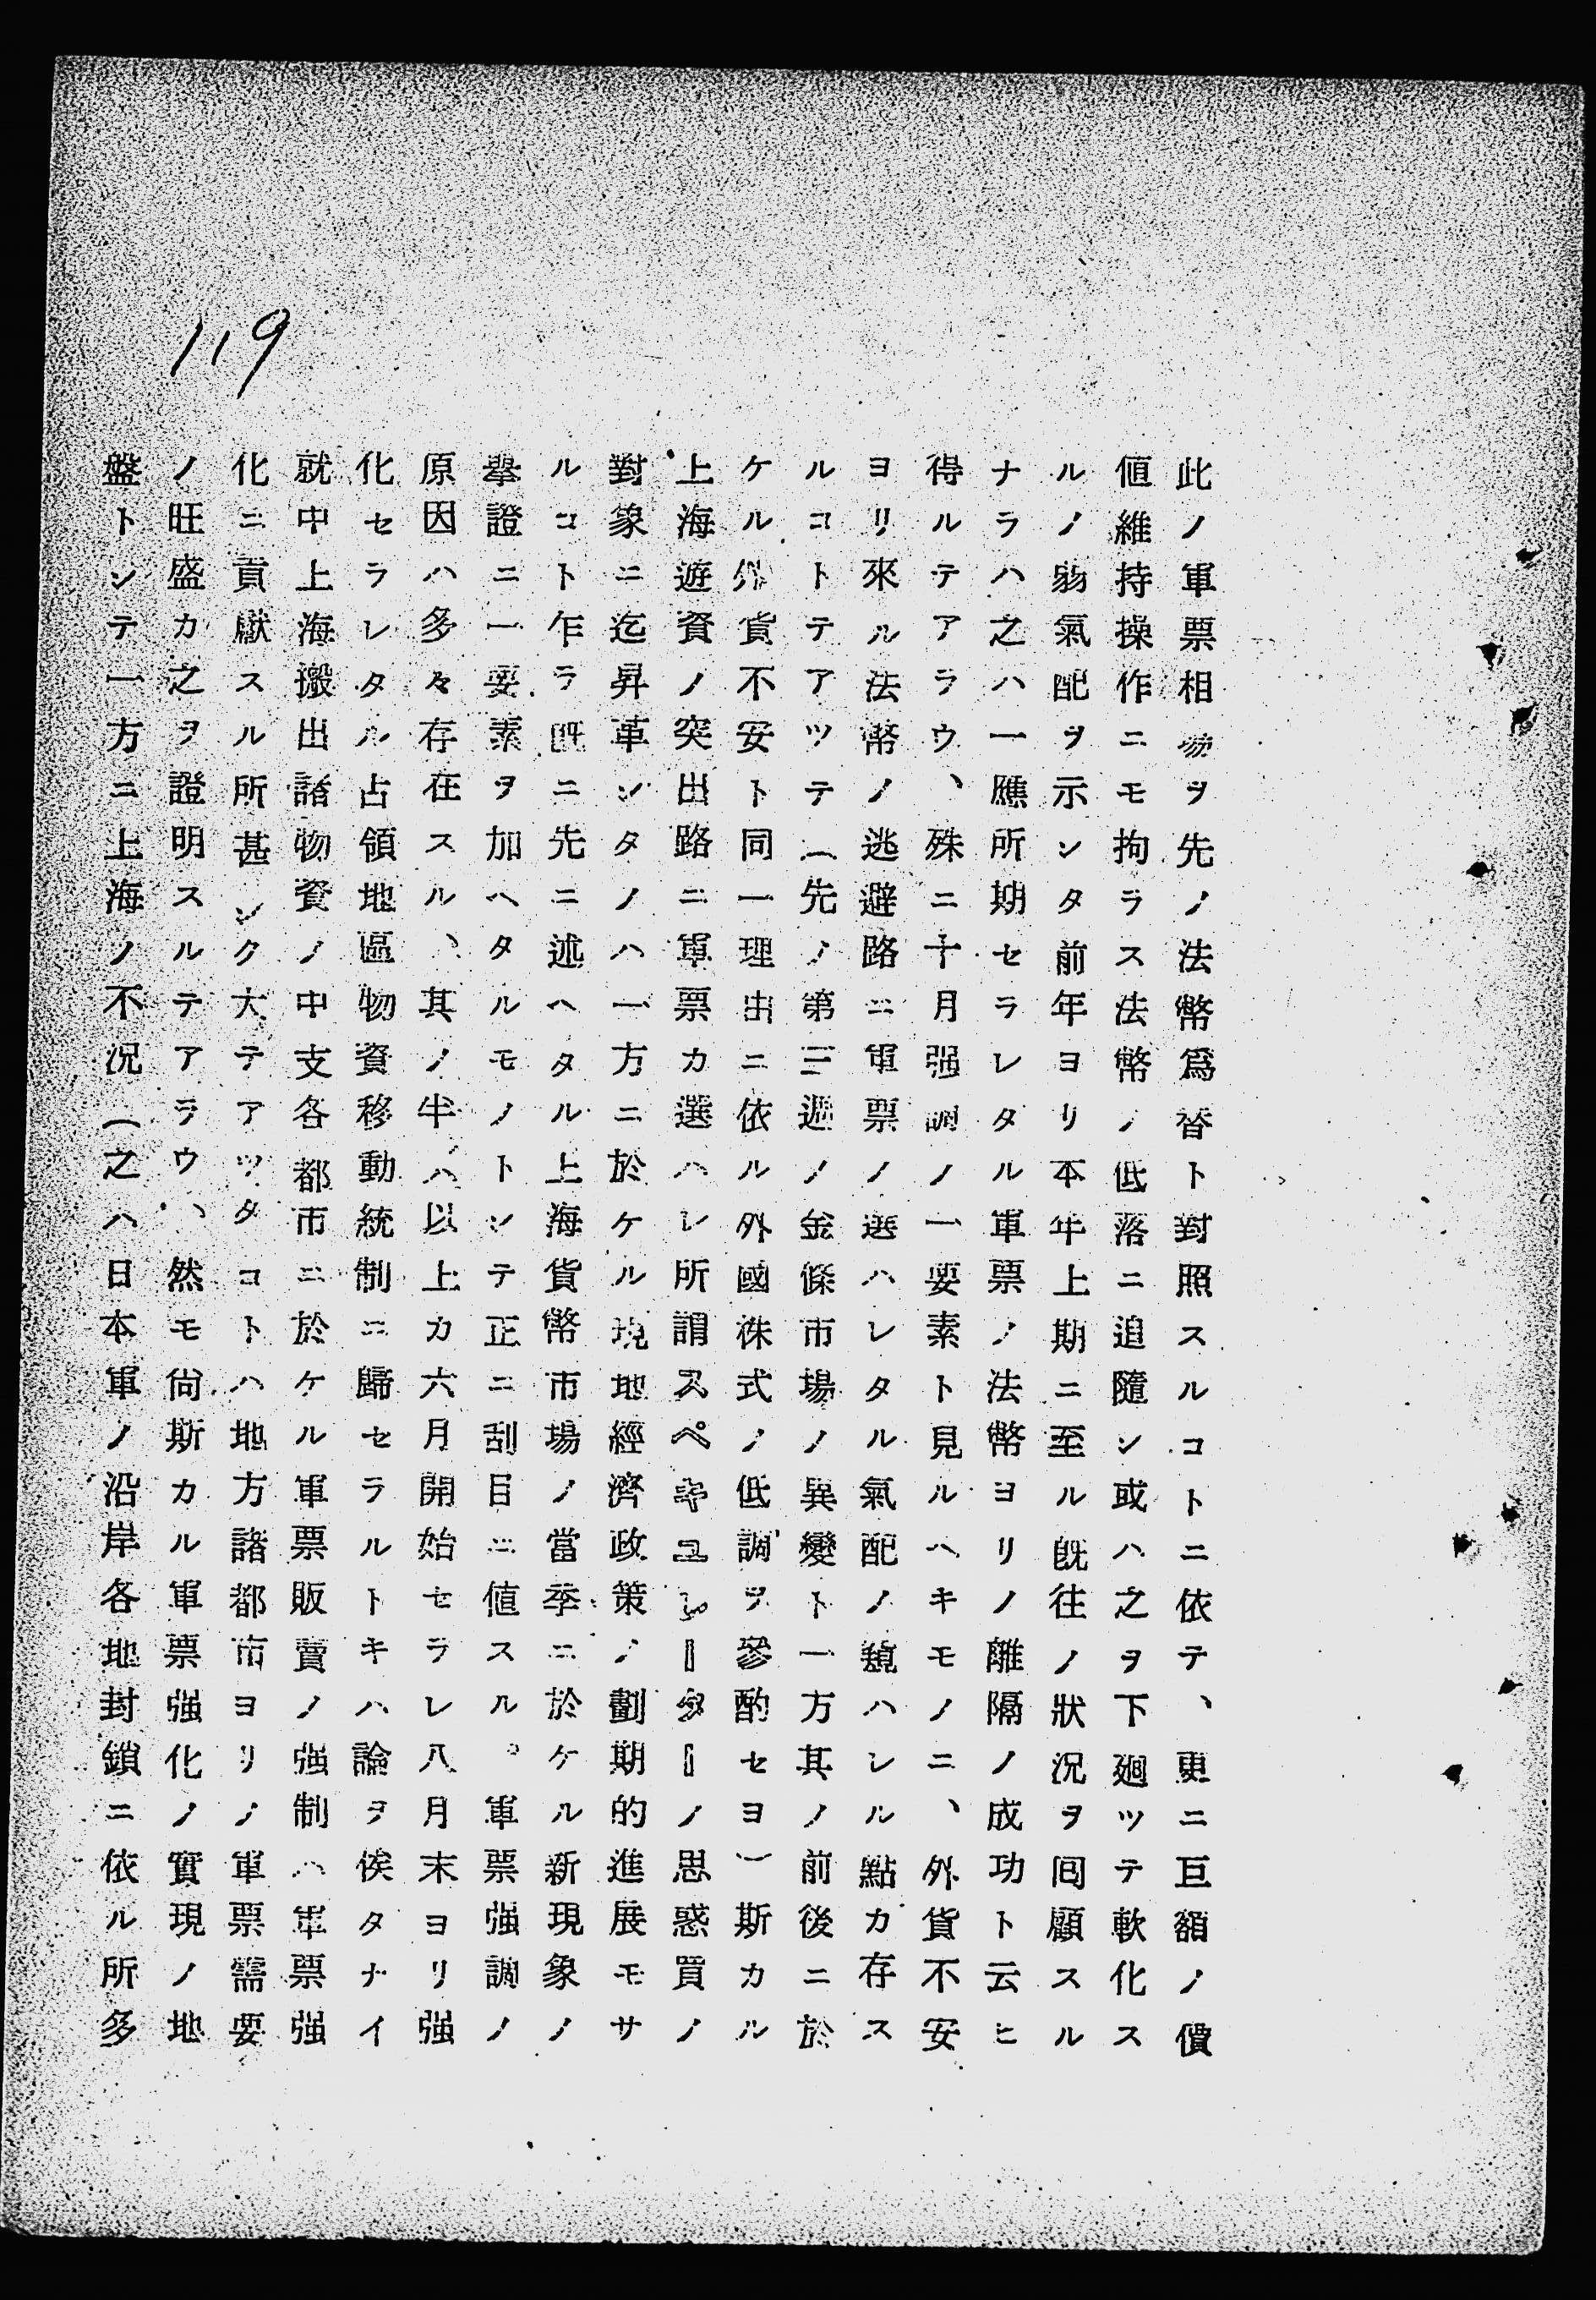 119
此ノ軍票相場ヲ先ノ法幣爲替ト對照スルコトニ依テ、更ニ巨額ノ價
値維持操作ニモ拘ラス法幣ノ低落ニ追隨シ或ハ之ヲ下廻ツテ軟化ス
ルノ弱氣配ヲ示シタ前年ヨリ本年上期ニ至ル既往ノ狀況ヲ囘顧スル
ナラハ之ハ一應所期セラレタル軍票ノ法幣ヨリノ離隔ノ成功ト云ヒ
得ルテアラウ、殊ニ十月强調ノ一要素ト見ルヘキモノニ、外貨不安
ヨリ來ル法幣ノ逃避路ニ軍票ノ選ハレタル氣配ノ窺ハレル點カ存ス
ルコトテアツテ（先ノ第三週ノ金條市場ノ異變ト一方其ノ前後ニ於
ケル外貨不安ト同一理由ニ依ル外國株式ノ低調ヲ參酌セヨ）斯カル
上海遊資ノ突出路ニ軍票カ選ハレ所謂スペキユレーターノ思惑買ノ
對象ニ迄昇華シタノハ一方ニ於ケル現地經濟政策ノ劃期的進展モサ
ルコト乍ラ既ニ先ニ述ヘタル上海貨幣市場ノ當季ニ於ケル新現象ノ
擧證ニ一要素ヲ加ヘタルモノトシテ正ニ刮目ニ値スル。軍票强調ノ
原因ハ多々存在スル、其ノ半ハ以上カ六月開始セラレ八月末ヨリ强
化セラレタル占領地區物資移動統制ニ歸セラルトキハ論ヲ俟タナイ
就中上海搬出諸物資ノ中支各都市ニ於ケル軍票販賣ノ强制ハ軍票强
化ニ貢獻スル所甚シク大テアツタコトハ地方諸都市ヨリノ軍票需要
ノ旺盛カ之ヲ證明スルテアラウ、然モ尙斯カル軍票强化ノ實現ノ地
盤トシテ一方ニ上海ノ不況（之ハ日本軍ノ沿岸各地封鎖ニ依ル所多